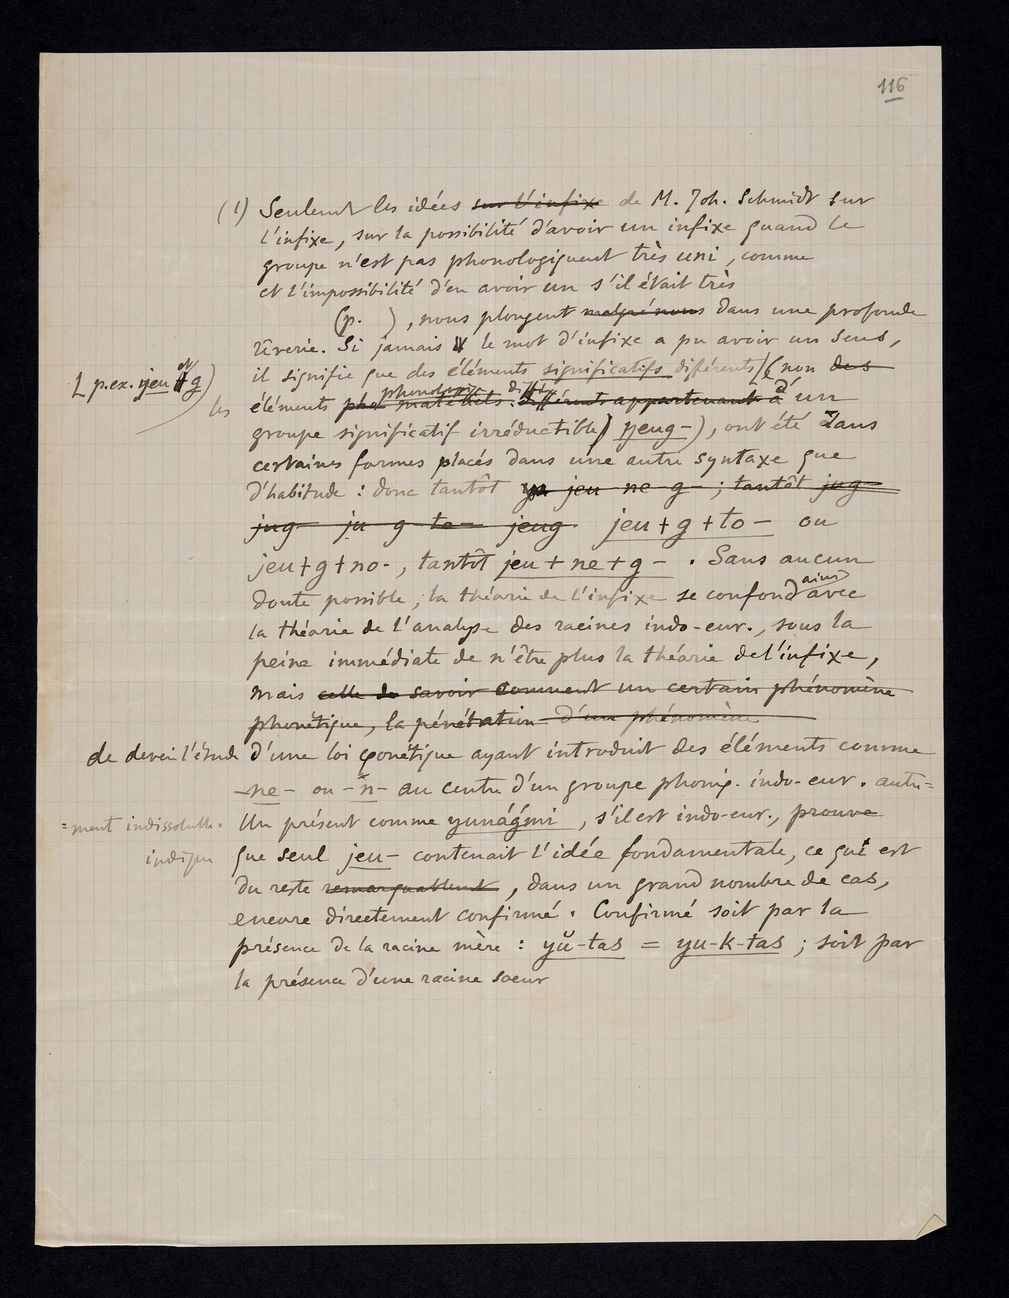 116
(1) Seulemt les idées sur l'infixe de M. Joh. Schmidt sur
l'infixe, sur la possibilité d'avoir un infixe quand le
groupe n'est pas phonologiquemt très uni, comme
et l'impossibilité d'en avoir un s'il était très
(p. ), nous plongent malgré nous dans une profonde
rêverie. Si jamais le mot d'infixe a pu avoir un sens,
il signifie que des éléments significatifs différents (non des
[ p.ex. jeu + g)
les éléments matériels différents appartenant à d'un
groupe significatif irréductible) yeug-), ont été dans
certaines formes placés dans une autre syntaxe que
d'habitude : donc tantôt jeu ne g ; tantôt jug
jug ju g to- jeug jeu + g + to - ou
jeu + g + no-, tantôt jeu + ne + g - . Sans aucun
doute possible, la théorie de l'infixe se confond ainsi avec
la théorie de l'analyse des racines indo-eur., sous la
peine immédiate de n'être plus la théorie de l'infixe,
mais celle de savoir comment un certain phénomène
phonétique, la pénétration d'un phénomène
de devenir l'étude d'une loi φonétique ayant introduit des éléments comme
-ne- ou -n- au centre d'un groupe phoniq. indo-eur. autre=
=ment indissoluble. Un présent comme yunáǵmi, s'il est indo-eur., prouve
indique
que seul jeu- contenait l'idée fondamentale, ce qui est
du reste remarquablemt, dans un grand nombre de cas,
encore directement confirmé. Confirmé soit par la
présence de la racine mère : yŭ-tas = yu-k-tas ; soit par
la présence d'une racine soeur